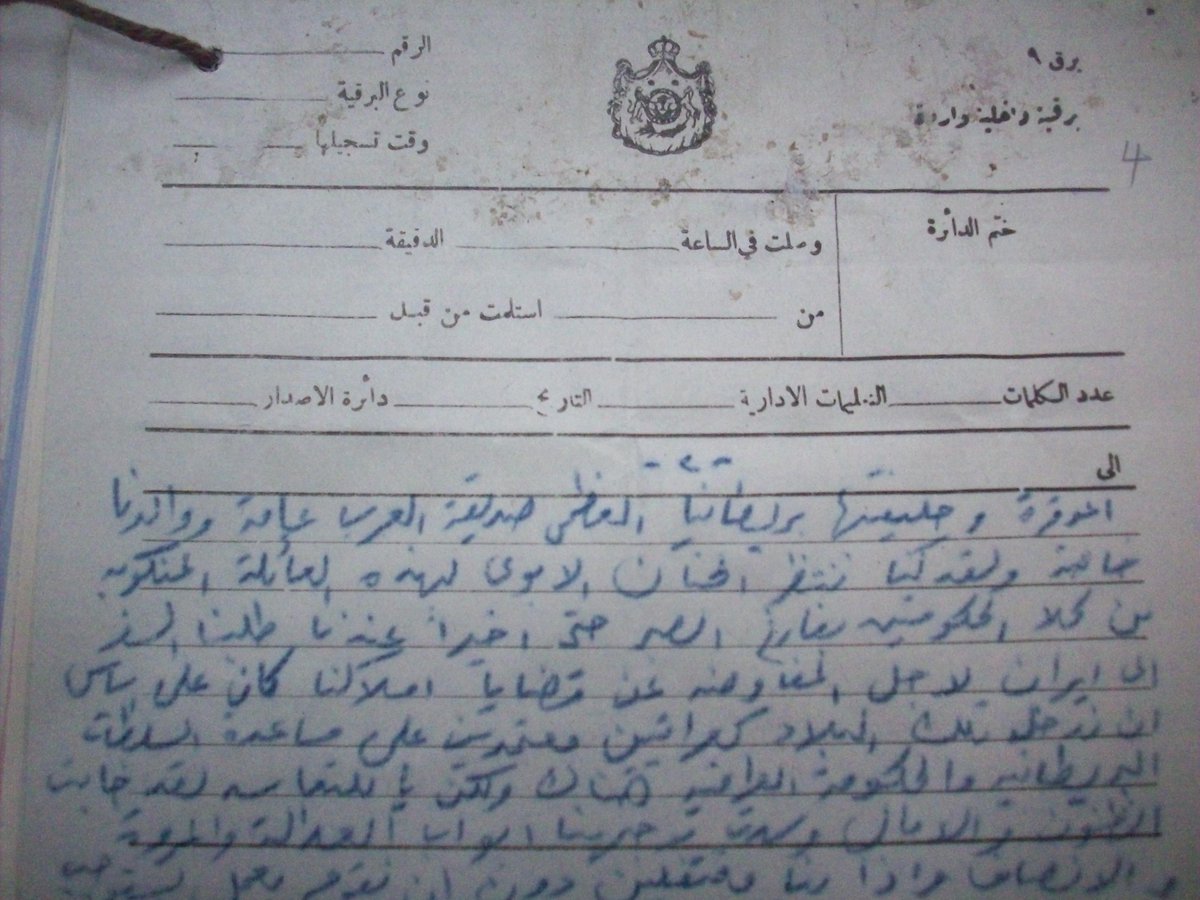 برق ٩
برقية داخلية واردة
الرقم
نوع البرقية
وقت تسجيلها
4
ختم الدائرة
وصلت في الساعة الدقيقة
من استلمت من قبل
عدد الكلمات التعليمات الادارية التاريخ دائرة الاصدار
الى
- ٢ -
الموقرة و حليفتها بريطانيا العظمى صديقة العرب عامة ووالدنا
خاصة ولقد كنا ننتظر الحنان الابوي لهذه العائلة المنكوبه
من كلا الحكومتين بفارغ الصبر حتى اخيراً عندما طلبنا السفر
الى ايران لاجل المفاوضه عن قضايا املاكنا كان على اساس
ان ندخل تلك البلاد كعراقيين معتمدين على مساعدة السلطات
البريطانيه والحكومة العراقيه هناك ولكن يا للتعاسه لقد خابت
الظنون و الامال وسدت بوجهنا ابواب العدالة والمروءة
و الانصاف واذا بنا معتقلين دون ان نقوم بعمل